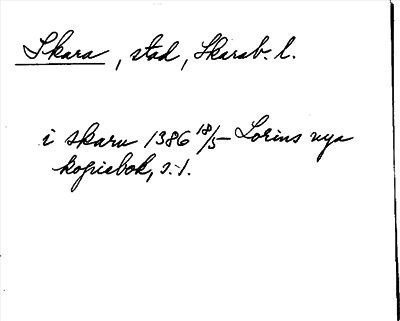 Skara, stad, Skarab. l.
i skaru 1386 18/5 Lorins nya
kopiebok, s. 1.